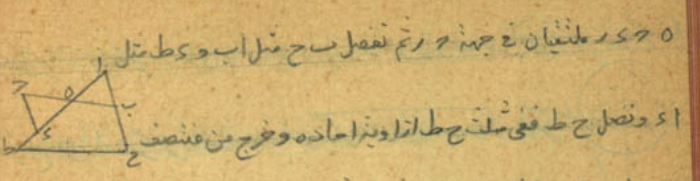 ه د ء ر ملتقيان في جهة د ر ثم نفصل ب ح مثل اب و ء ط مثل
ا ء و نصل ح ط ففى مثلث ح ط ا زاوية ا حاده و خرج من منتصف